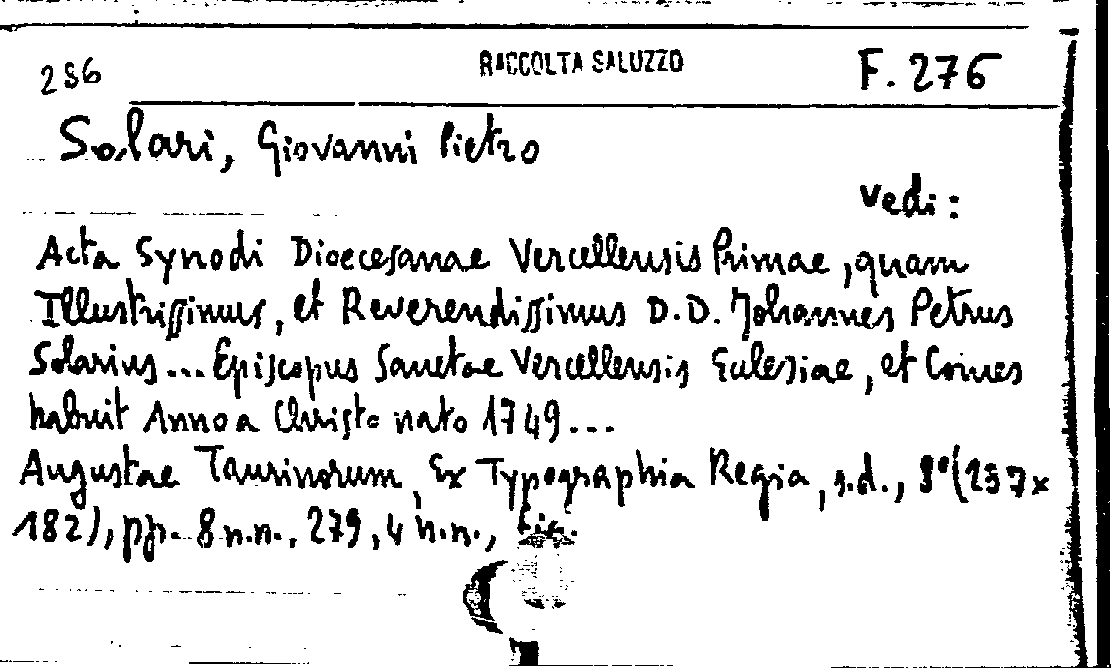 286 RACCOLTA SALUZZO F. 276
Solari, Giovanni Pietro
vedi:
Acta Synodi Dioecesanae Vercellensis Primae, quam
Illustrissimus, et Reverendissimus D.D. Johannes Petrus
Solarius... Episcopus Sanctae Vercellensis Eclesiae, et Comes
habuit Anno a Christo nato 1749...
Augustae Taurinorum, Ex Typographia Regia, s.d., 8°(237x
182), pp. 8 n.n., 279, 4 n.n.,